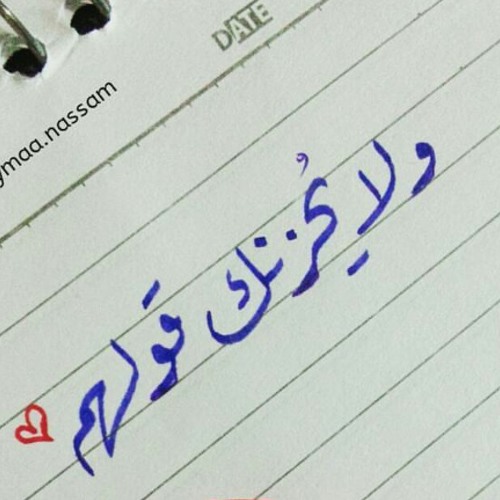 DATE
ymaa.nassam
ولا يُحزنك قولهم